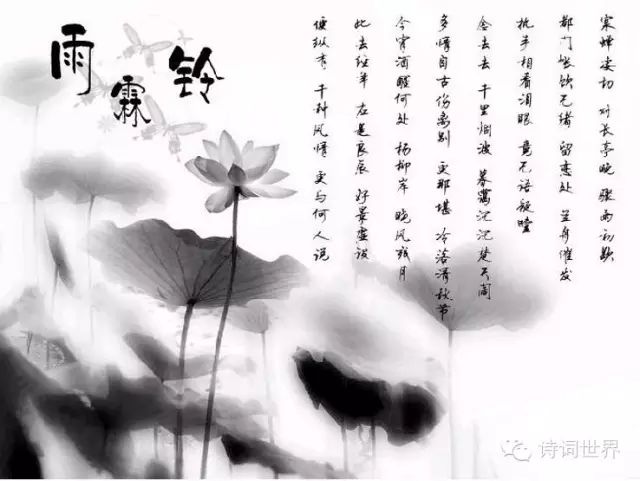 雨霖铃
寒蝉凄切 对长亭晚 骤雨初歇
都门帐饮无绪 留恋处 兰舟催发
执手相看泪眼 竟无语凝噎
念去去 千里烟波 暮霭沉沉楚天阔
多情自古伤离别 更那堪 冷落清秋节
今宵酒醒何处 杨柳岸 晓风残月
此去经年 应是良辰 好景虚设
便纵有 千种风情 更与何人说
诗词世界